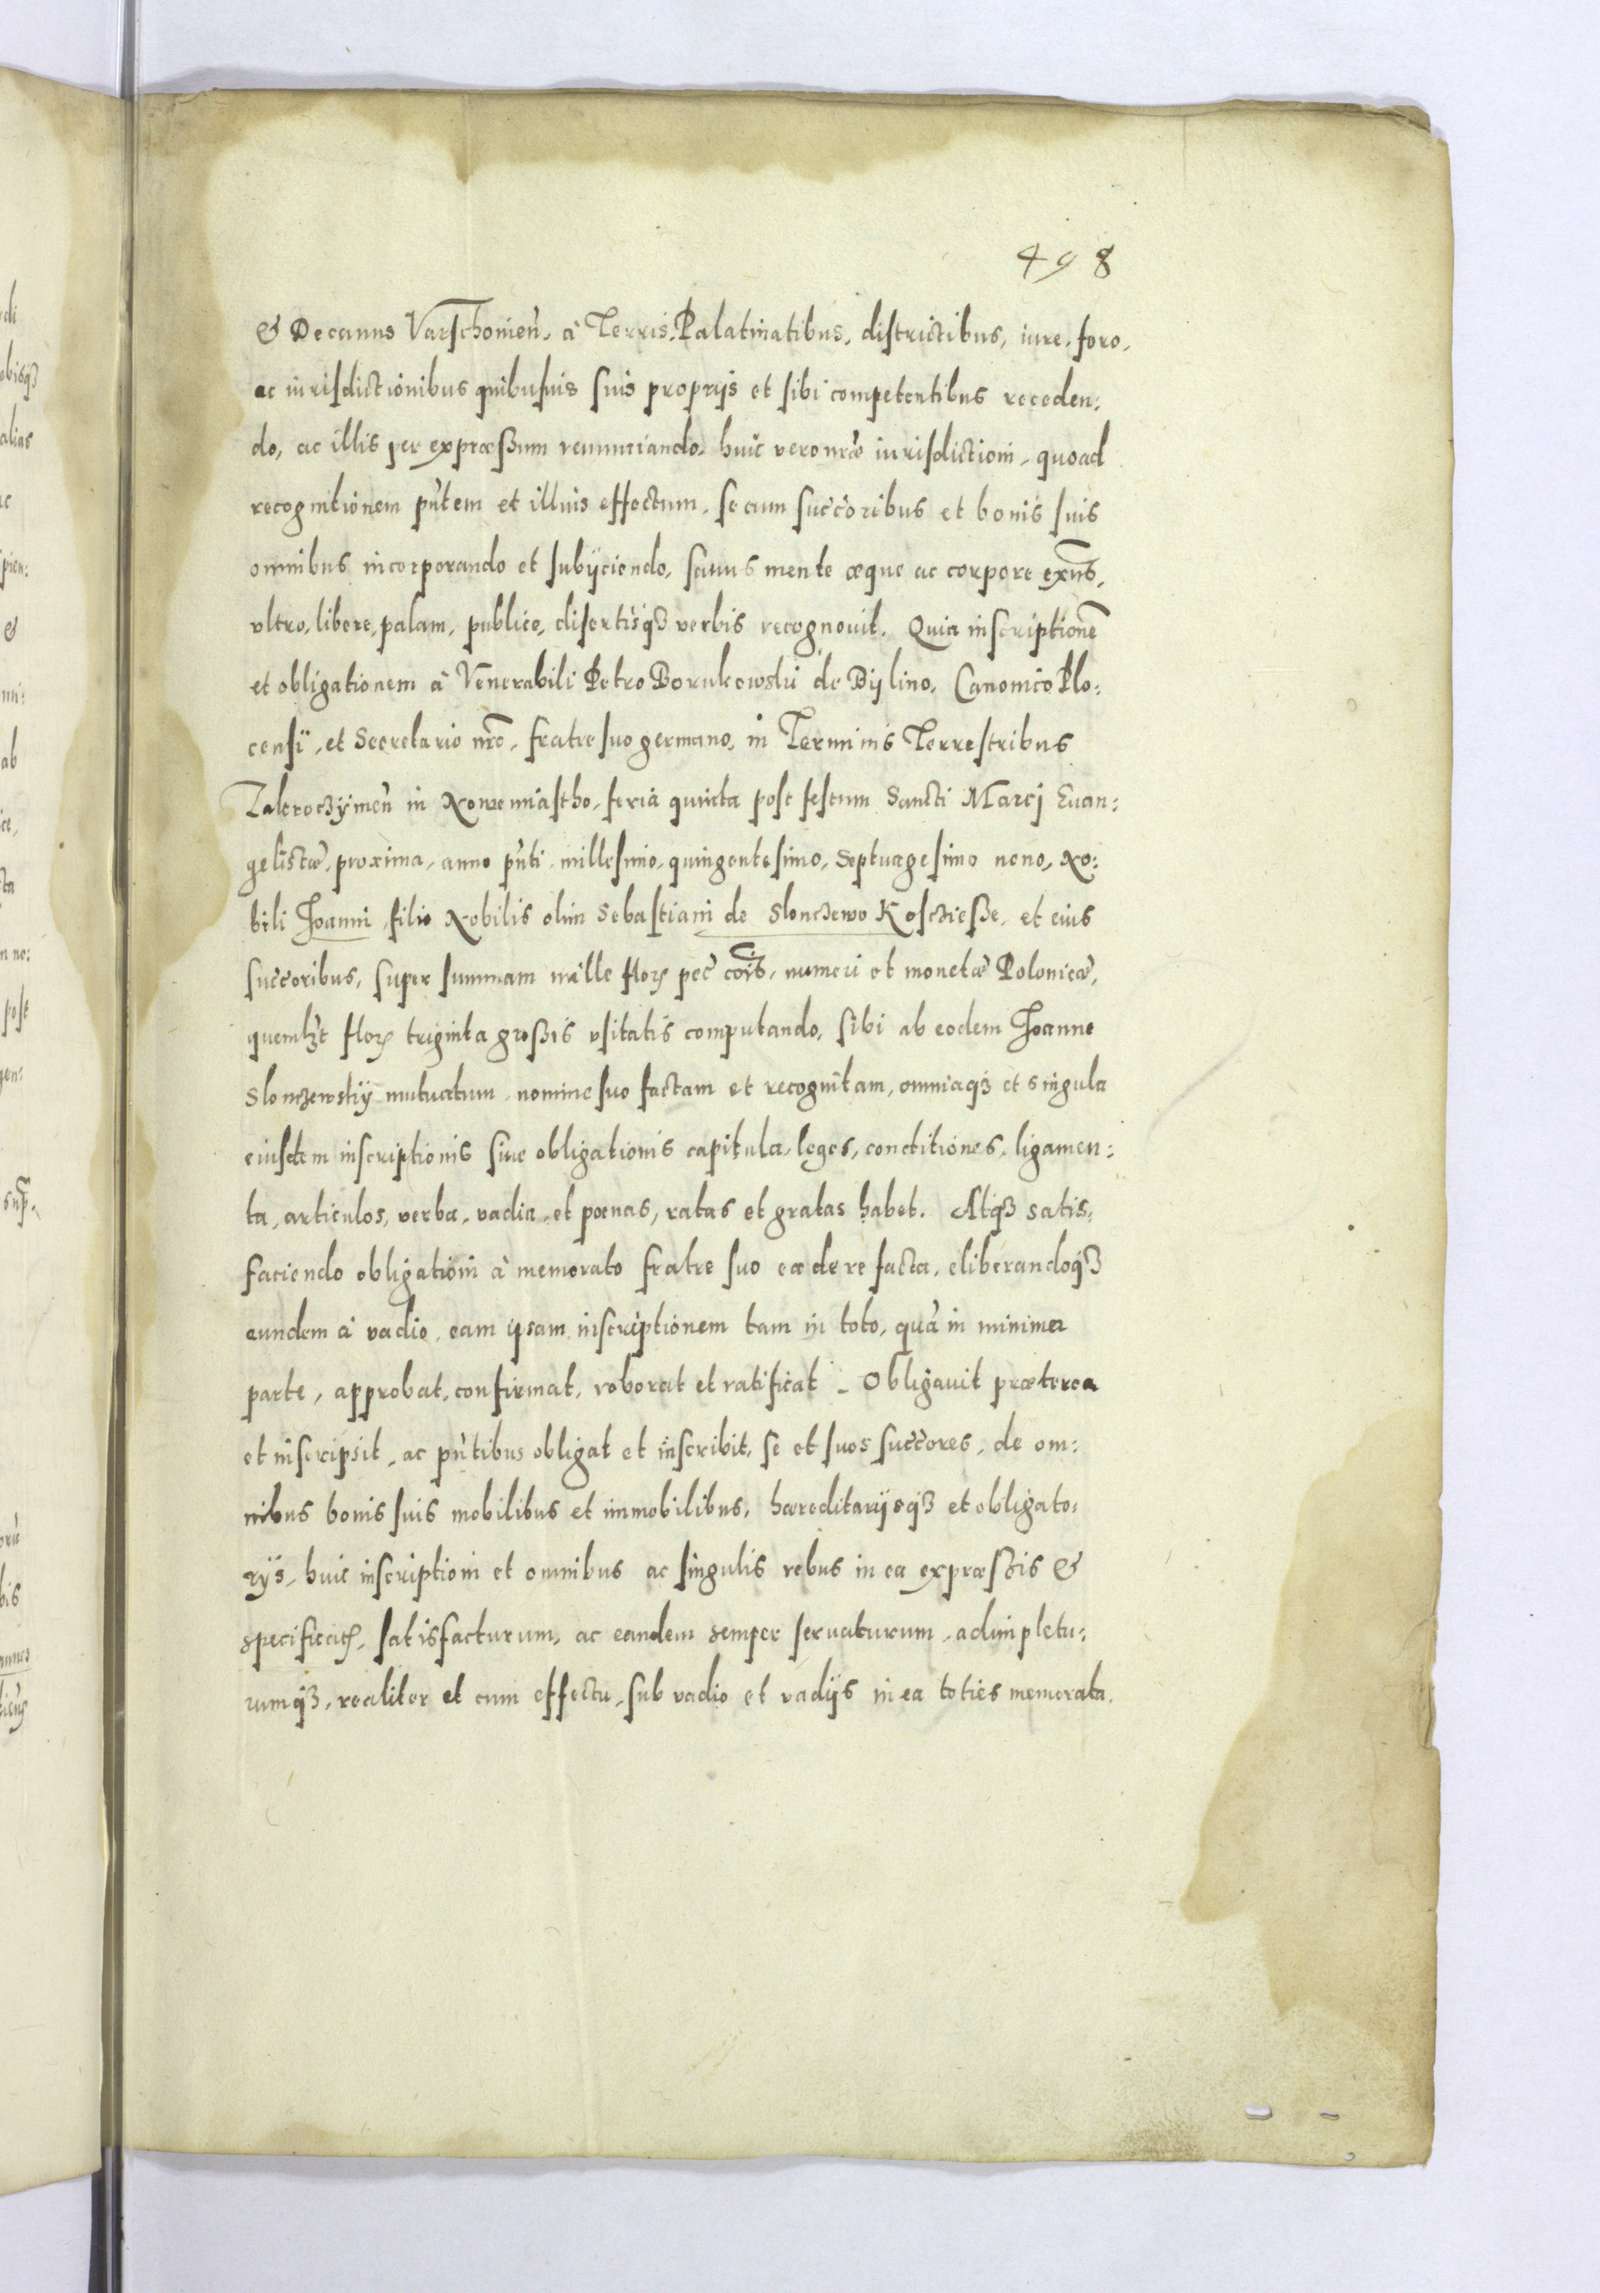 498
& Decanus Varschovien̄, à Terris, Palatinatibus, districtibus, iure, foro,
ac iurisdictionibus quibusuis suis proprijs et sibi competentibus receden:
do, ac illis per expræssum renunciando, huic vero nr̄æ iurisdictioni, quoad
recognitionem pñtem et illius effectum, se cum succ̄oribus et bonis suis
omnibus incorporando et subijciendo, sanus mente æque ac corpore exñs,
vltro, libere, palam, publice, disertisqȝ verbis recognovit. Quia inscriptionē
et obligationem à Venerabili Petro Borukowski de Bijlino, Canonico Plo:
censi, et Secretario nr̄o, fratre suo germano, in Terminis Terrestribus
Zakroczijmen̄ in Nowemiastho, feria quinta post festum Sancti Marcj Euan:
gelistæ, proxima, anno pñti millesimo, quingentesimo, Septuagesimo nono, No:
bili Joanni, filio Nobilis olim Sebastiani de Slonczewo Koscziesße, et eius
succ̄oribus, super summam mille flor̄ pec̄ cōis, numeri et monetæ Polonicæ,
quemlȝt flor̄ triginta grossis vsitatis computando, sibi ab eodem Joanne
Slonczewskij mutuatum, nomine suo factam et recognitam, omniaqȝ et singula
eiusdem inscriptionis siue obligationis capitula, leges, conditiones, ligamen:
ta, articulos, verba, vadia, et pœnas, ratas et gratas habet. Atqȝ satis,
faciendo obligationi à memorato fratre suo ea de re facta, eliberandoqȝ
eundem à vadio, eam ipsam inscriptionem tam in toto, quā in minima
parte, approbat, confirmat, roborat et ratificat. Obligavit præterea
et inscripsit, ac pñtibus obligat et inscribit, se et suos succ̄ores, de om:
nibus bonis suis mobilibus et immobilibus, hæreditarijsqȝ et obligato:
rijs, huic inscriptioni et omnibus ac singulis rebus in ea expræssis &
specificatꝭ, satisfacturum, ac eandem semper seruaturum, adimpletu:
rumqȝ, realiter et cum effectu, sub vadio et vadijs in ea toties memorata.